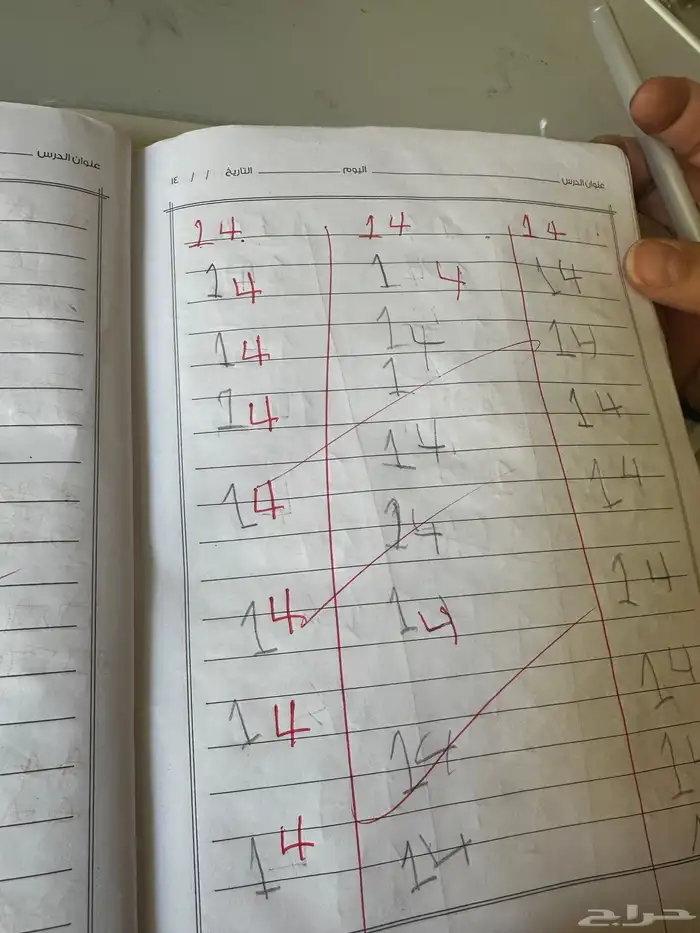 عنوان الدرس
عنوان الدرس اليوم التاريخ / / ١٤
14 14 14
14 14 14
14 14 14
14 1 14
14 14 14
14 14 14
14 14 14
14 14 1
14 14
حراج